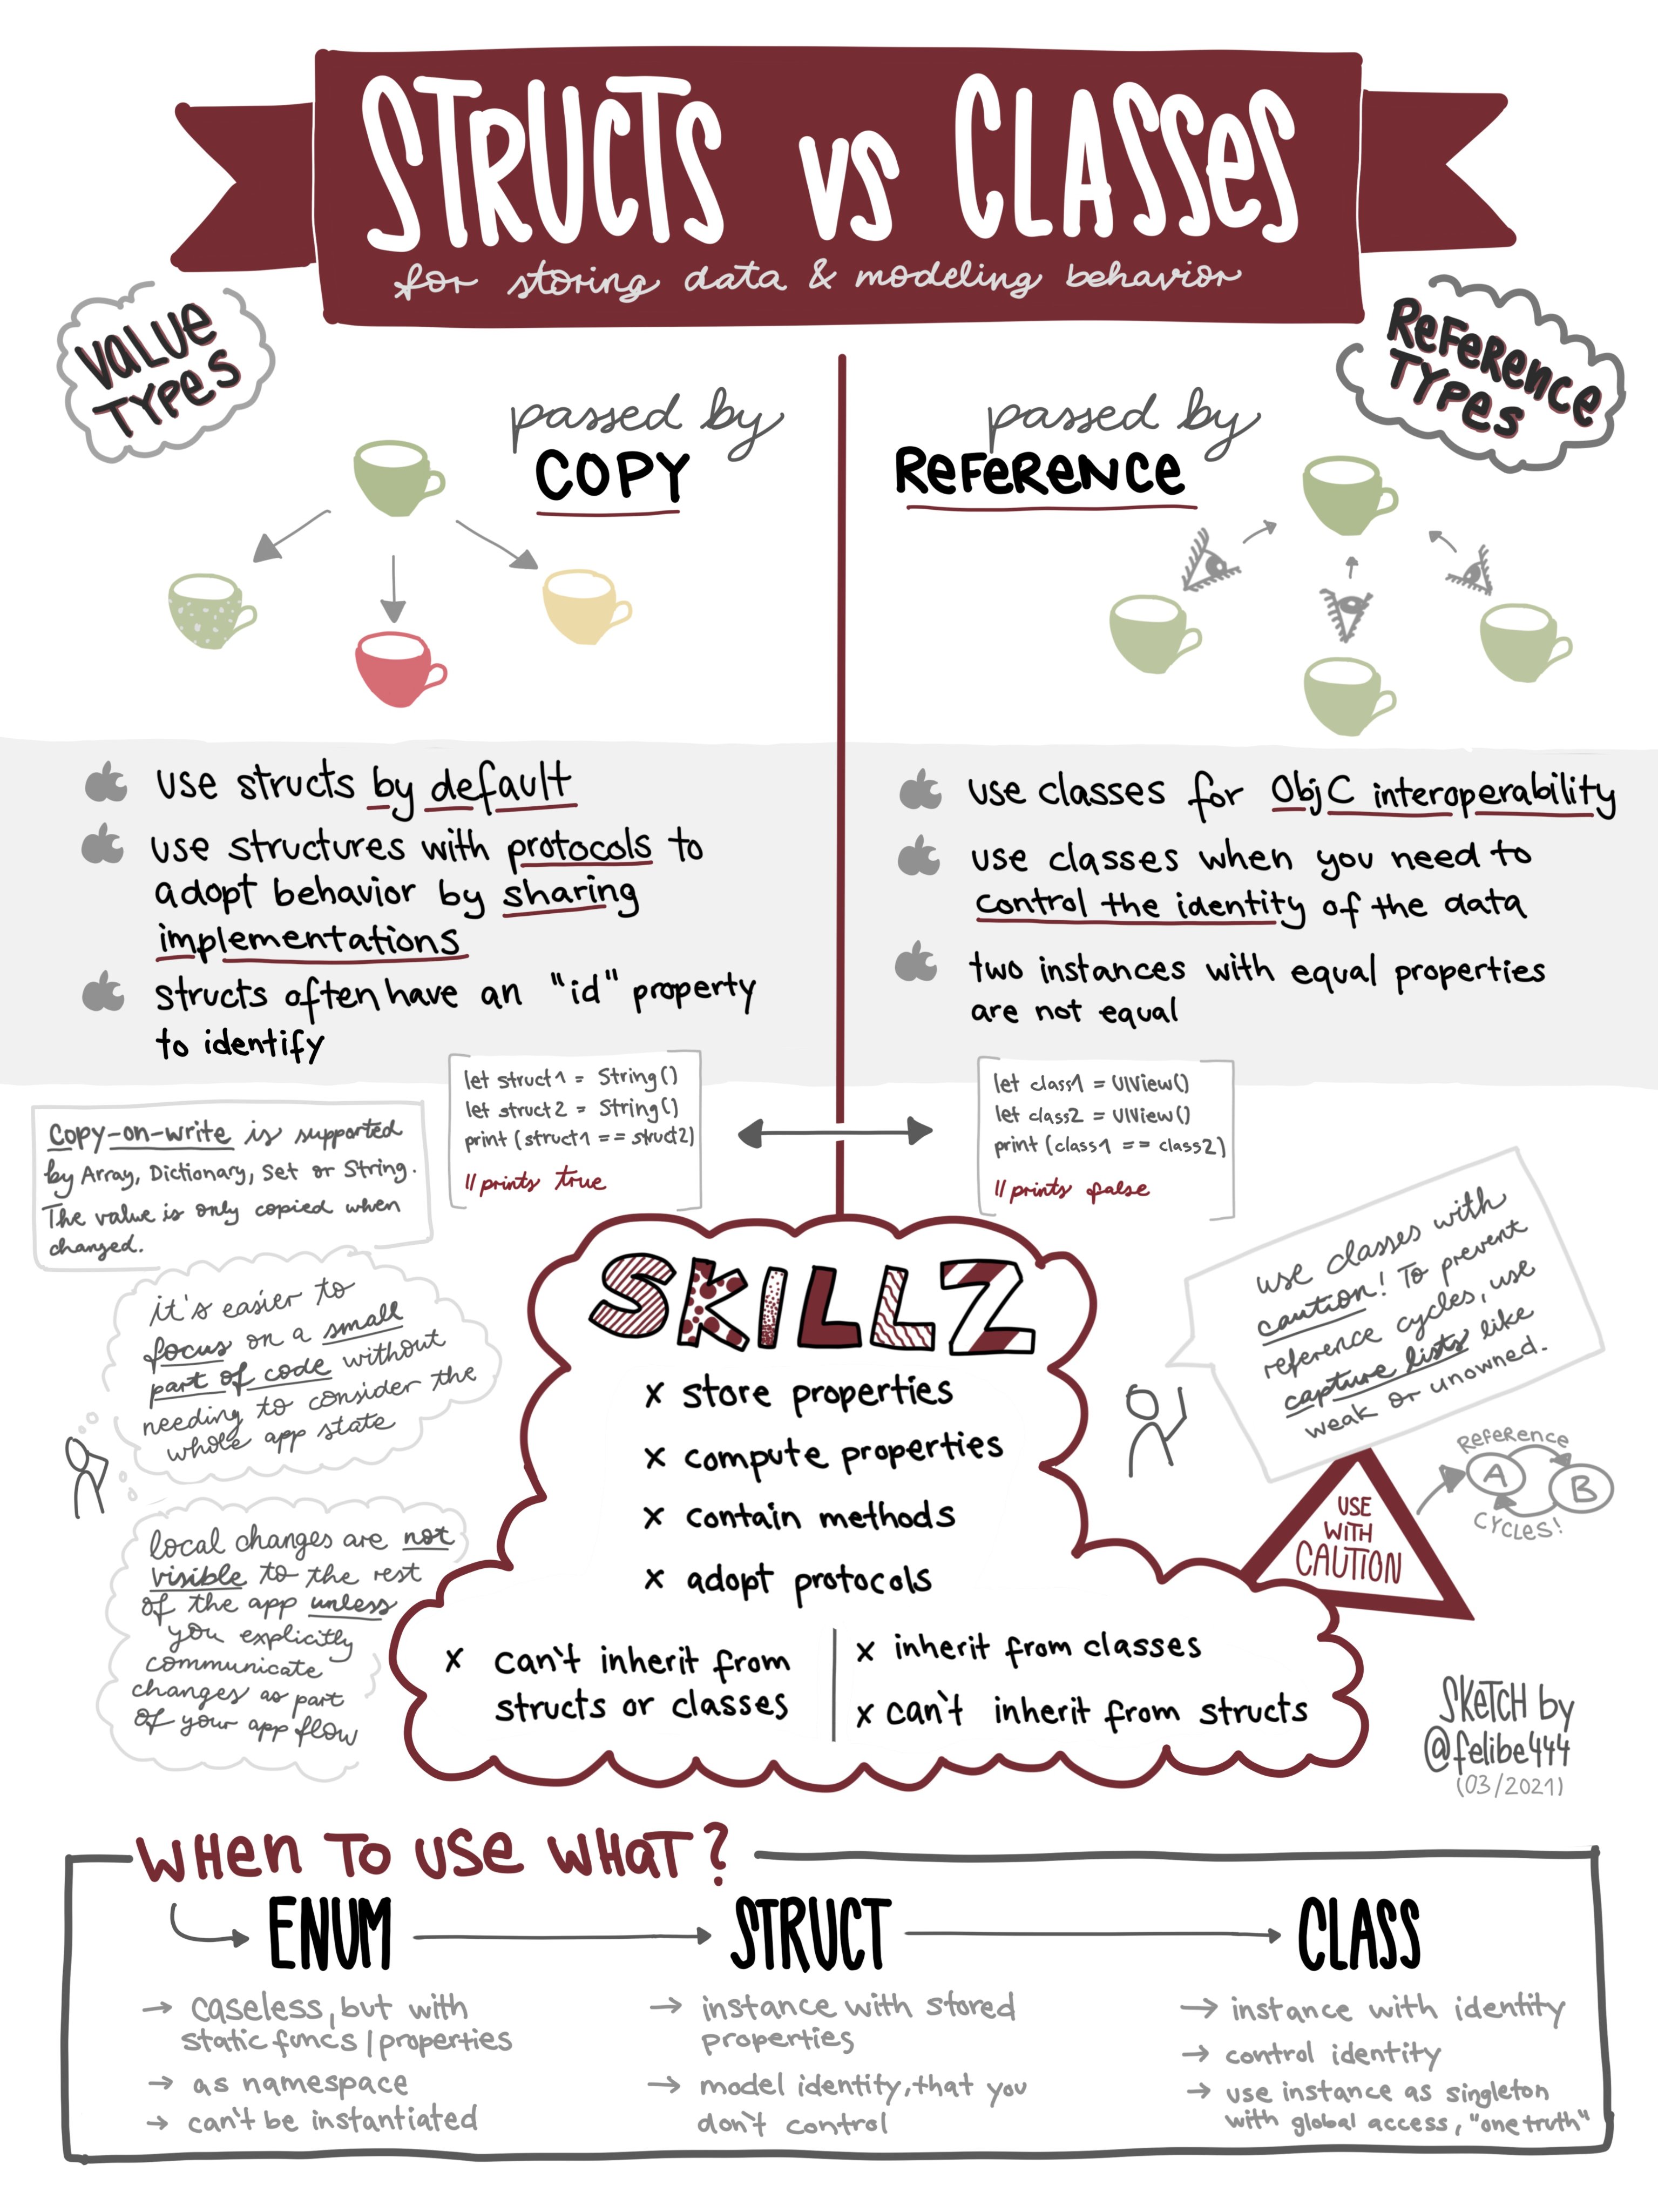 STRUCTS vs CLASSES
for storing data & modeling behavior
VALUE
TYPES
REFERENCE
TYPES
passed by
COPY
passed by
REFERENCE
use structs by default
use structures with protocols to
adopt behavior by sharing
implementations
structs often have an "id" property
to identify
use classes for ObjC interoperability
use classes when you need to
control the identity of the data
two instances with equal properties
are not equal
let struct1 = String()
let struct2 = String()
print (struct1 == struct2)
// prints true
let class1 = UIView()
let class2 = UIView()
print (class1 == class2)
// prints false
Copy-on-write is supported
by Array, Dictionary, Set or String.
The value is only copied when
changed.
it's easier to
focus on a small
part of code without
needing to consider the
whole app state
local changes are not
visible to the rest
of the app unless
you explicitly
communicate
changes as part
of your app flow
SKILLZ
x store properties
x compute properties
x contain methods
x adopt protocols
x can't inherit from
structs or classes
x inherit from classes
x can't inherit from structs
use classes with
caution! To prevent
reference cycles, use
capture lists like
weak or unowned.
REFERENCE
A
B
CYCLES!
USE
WITH
CAUTION
SKETCH by
@felibe444
(03/2021)
WHEN TO USE WHAT?
ENUM
→ caseless, but with
static funcs / properties
→ as namespace
→ can't be instantiated
STRUCT
→ instance with stored
properties
→ model identity, that you
don't control
CLASS
→ instance with identity
→ control identity
→ use instance as singleton
with global access, "one truth"